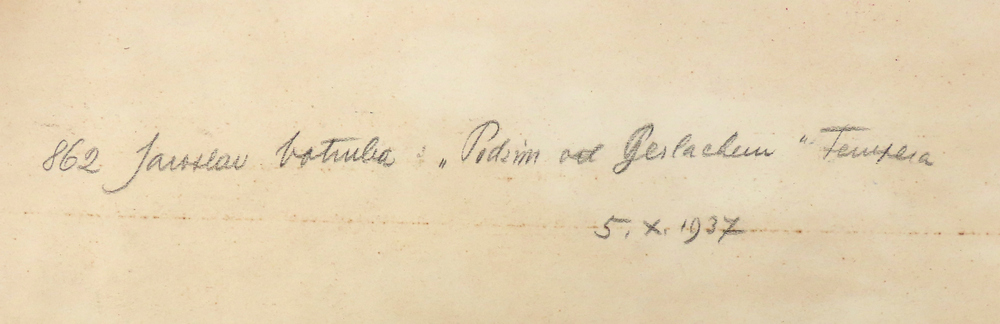 862 Jaroslav Votruba : „Podzim od Gerlachem" Tempera
5. X. 1937